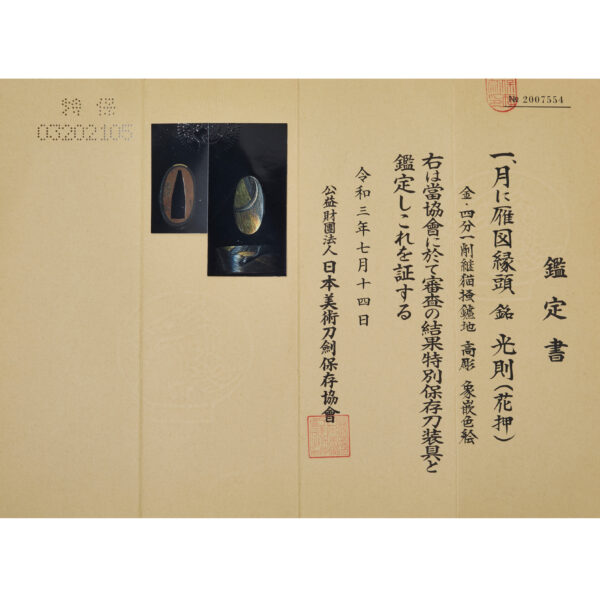 № 2007554
鑑定書
一、月に雁図縁頭 銘 光則(花押)
金・四分一削継猫掻鑢地 高彫 象嵌色絵
右は當協會に於て審査の結果特別保存刀装具と
鑑定しこれを証する
令和三年七月十四日
公益財團法人 日本美術刀劍保存協會
特保
03202105